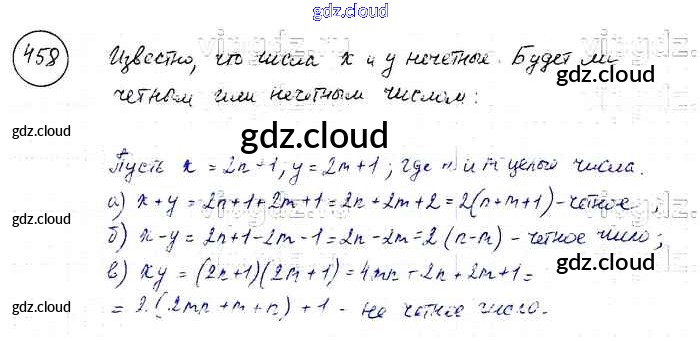 gdz.cloud
458 Известно, что числа x и y нечетные. Будет ли
четным или нечетным числом:
gdz.cloud
gdz.cloud
gdz.cloud
gdz.cloud
Пусть x = 2n+1, y = 2m+1, где n и m целые числа.
а) x+y = 2n+1+2m+1 = 2n+2m+2 = 2(n+m+1) - четное,
gdz.cloud
б) x-y = 2n+1-2m-1 = 2n-2m = 2(n-m) - четное число;
в) xy = (2n+1)(2m+1) = 4mn+2n+2m+1 =
gdz.cloud
= 2(2mn+m+n)+1 - не четное число.
gdz.cloud
gdz.cloud